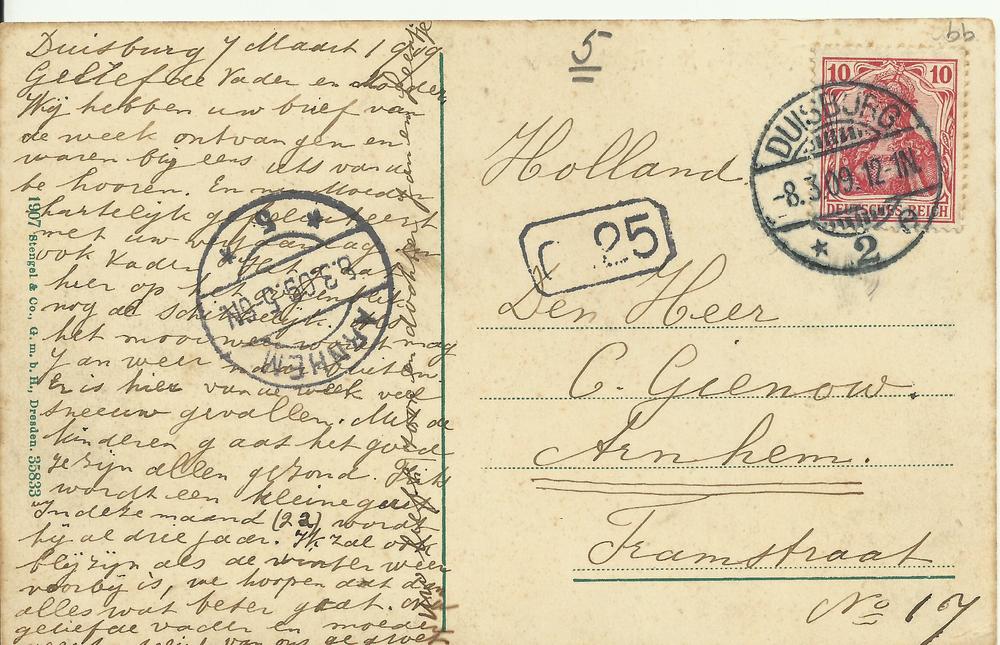 Duisburg 7 Maart 1909
Geliefde Vader en Moeder
Wij hebben uw brief van
de week ontvangen en
waren blij eens iets van u
te hooren. En nu Moeder
hartelijk gefeliciteerd
met uw verjaardag
ook Vader
hier op het
nog de
het mooi weer wordt mag
J an weer naar buiten.
Er is hier van de week veel
sneeuw gevallen. Met de
kinderen gaat het goed
ze zijn allen gezond.
wordt een kleine
In deze maand (22) wordt
hij al drie jaar. Ik zal ook
blij zijn als de winter weer
voorbij is, we hoopen dat dan
alles wat beter gaat. 
geliefde vader en moeder
van ons
1907 Stengel & Co., G. m. b. H., Dresden. 35833
15
bb
10 10
DEUTSCHES REICH
DUISBURG
-8.3.09.12-1N.
* 2
25
ARNHEM
8.3.09. 5-6N.
* 5 *
Holland
Den Heer
C. Gienow.
Arnhem.
Tramstraat
No 17